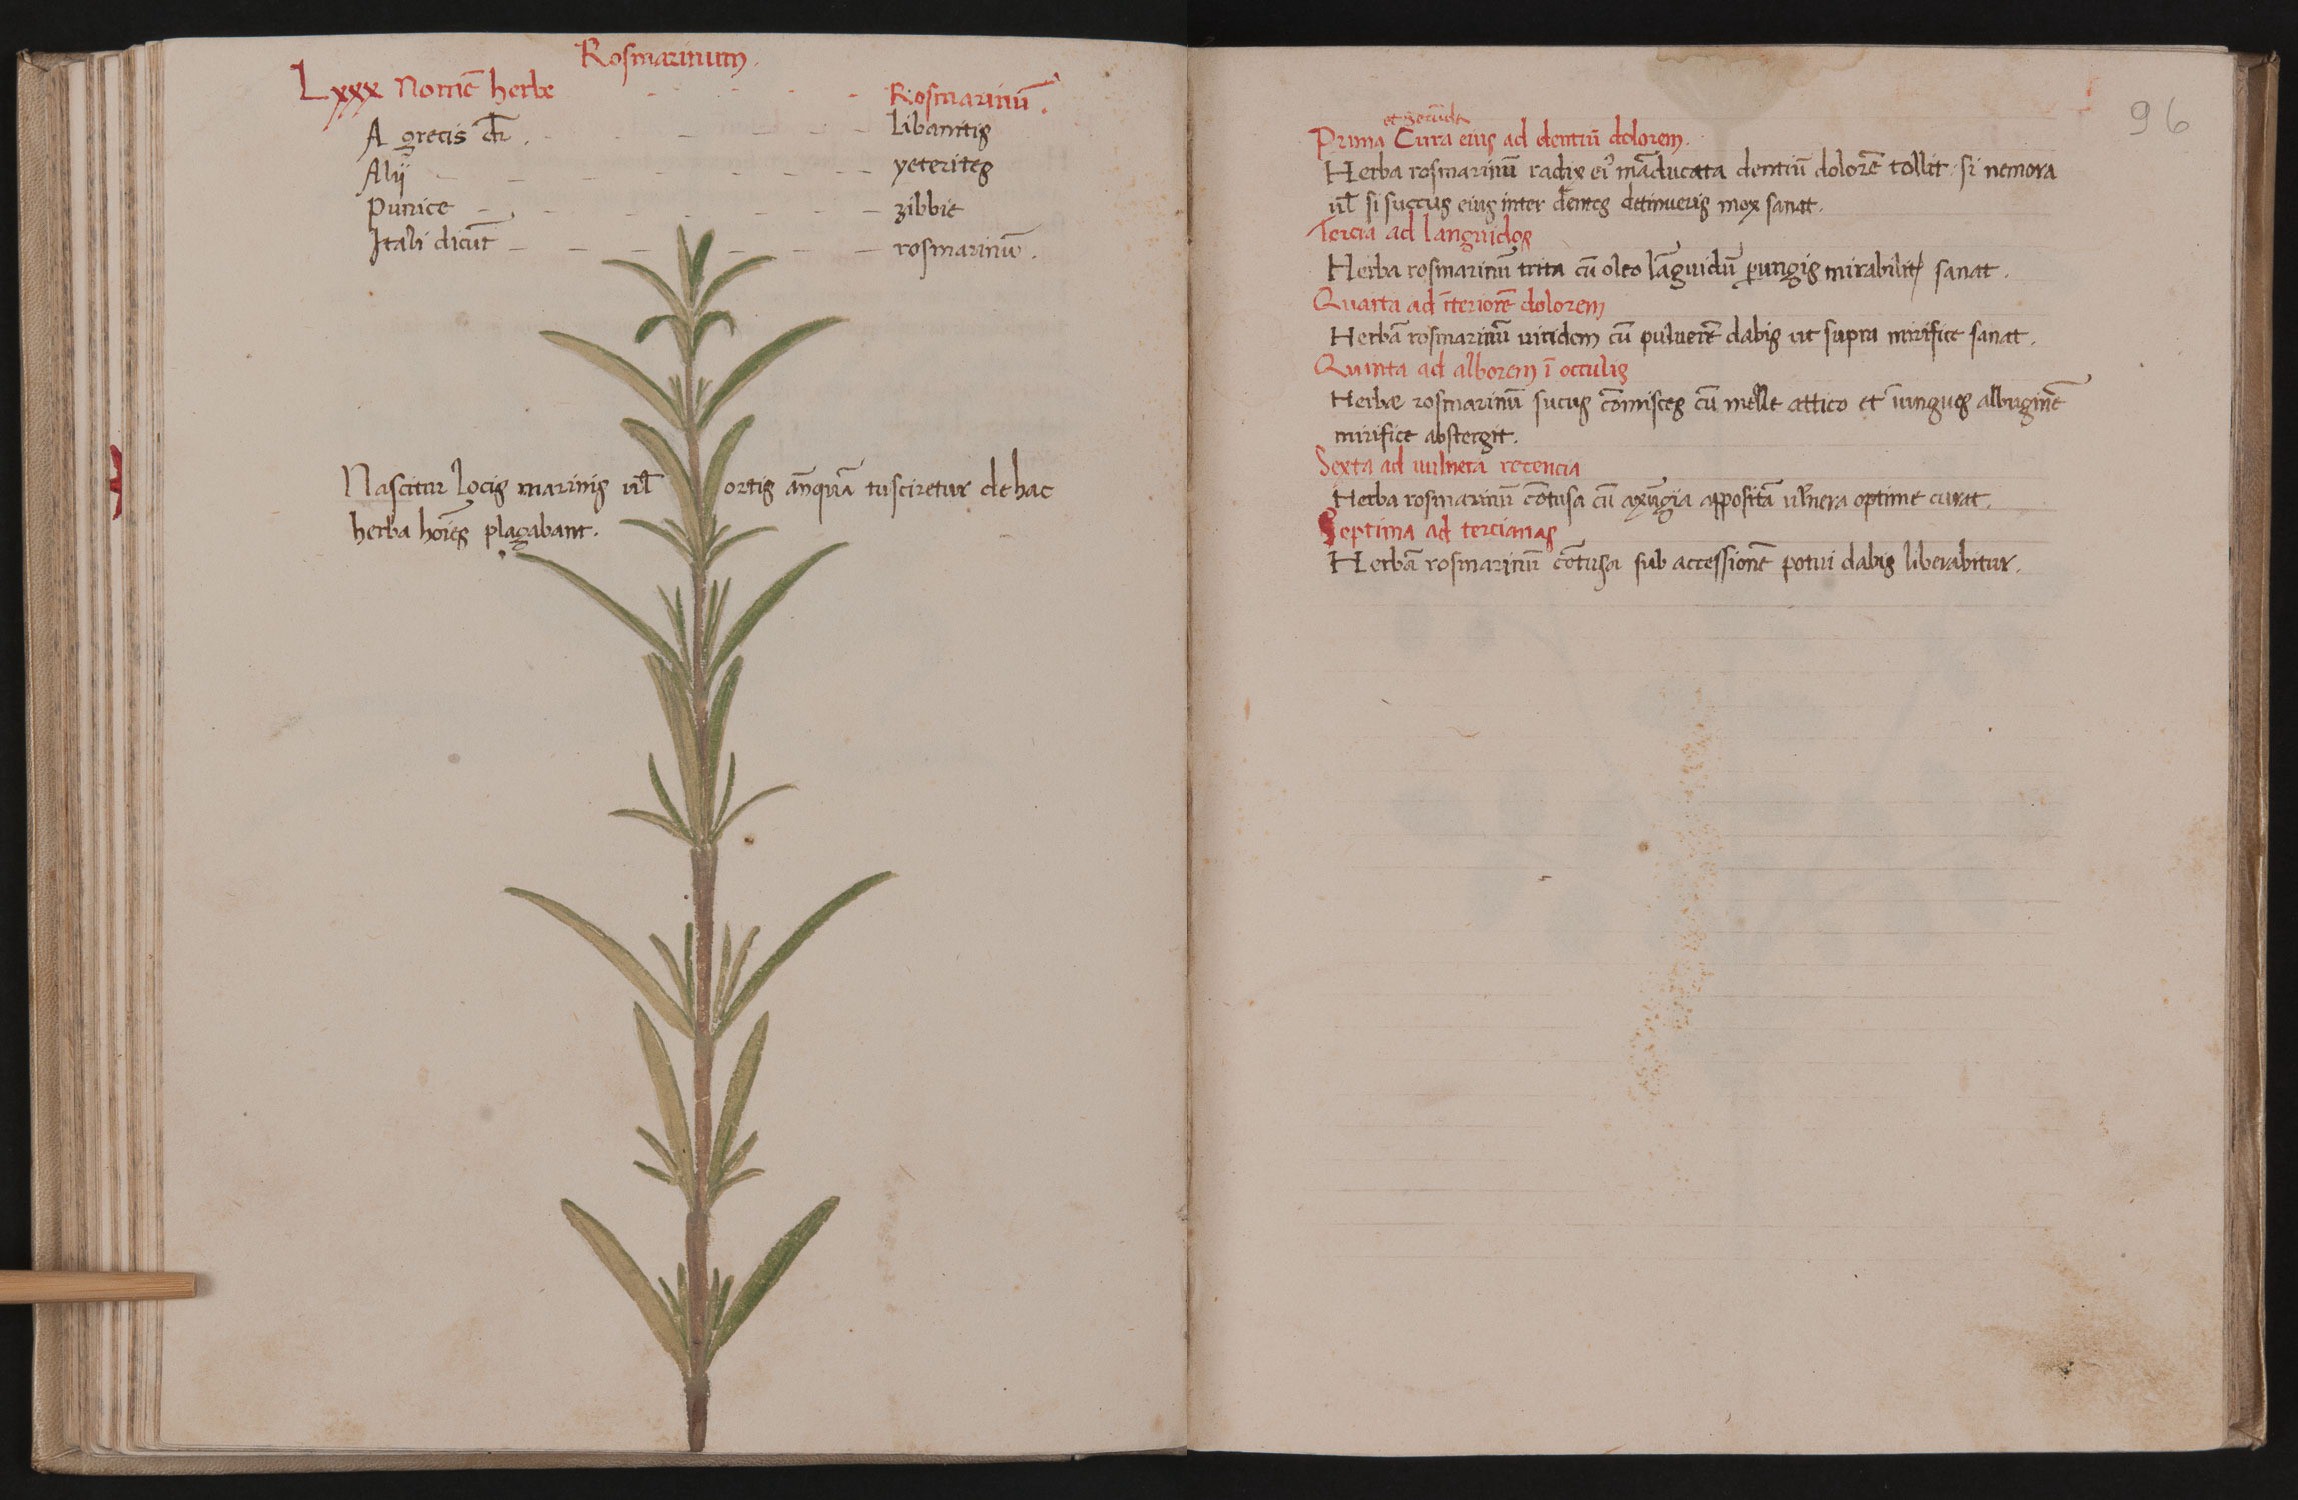 Rosmarinum.
Lxxx Nomē herbe - - - - Rosmarinū.
A grecis dr̄. - - - - - libanitis
Alij - - - - - - yeterites
Punice - - - - - - zibbie
Itali dicūt - - - - - - rosmarinū.
Nascitur locis marinis ul̄ ortis an̄quā tus sciretur de hac
herba hoīes plagabant.
96
et secūda
Prima Cura eius ad dentiū dolorem.
Herba rosmarinū radix ei⁹ māducata dentiū dolorē tollit. si nemora
ul̄ si succus eius inter dentes detinueris mox sanat.
Tercia ad languidos
Herba rosmarinū trita cū oleo lāguidū ꝑungis mirabilit̃ sanat.
Quarta ad īteriorē dolorem
Herbā rosmarinū uiridem cū puluerē dabis ut supra mirifice sanat.
Quinta ad alborem ī occulis
Herbæ rosmarinū sucus cōmisces cū melle attico et ūingues albuginē
mirifice abstergit.
Sexta ad uulnera recencia
Herba rosmarinū cōtusa cū axūgia apposita uĺnera optime curat.
Septima ad tercianas
Herbā rosmarinū cōtusa sub accessionē potui dabis liberabitur.